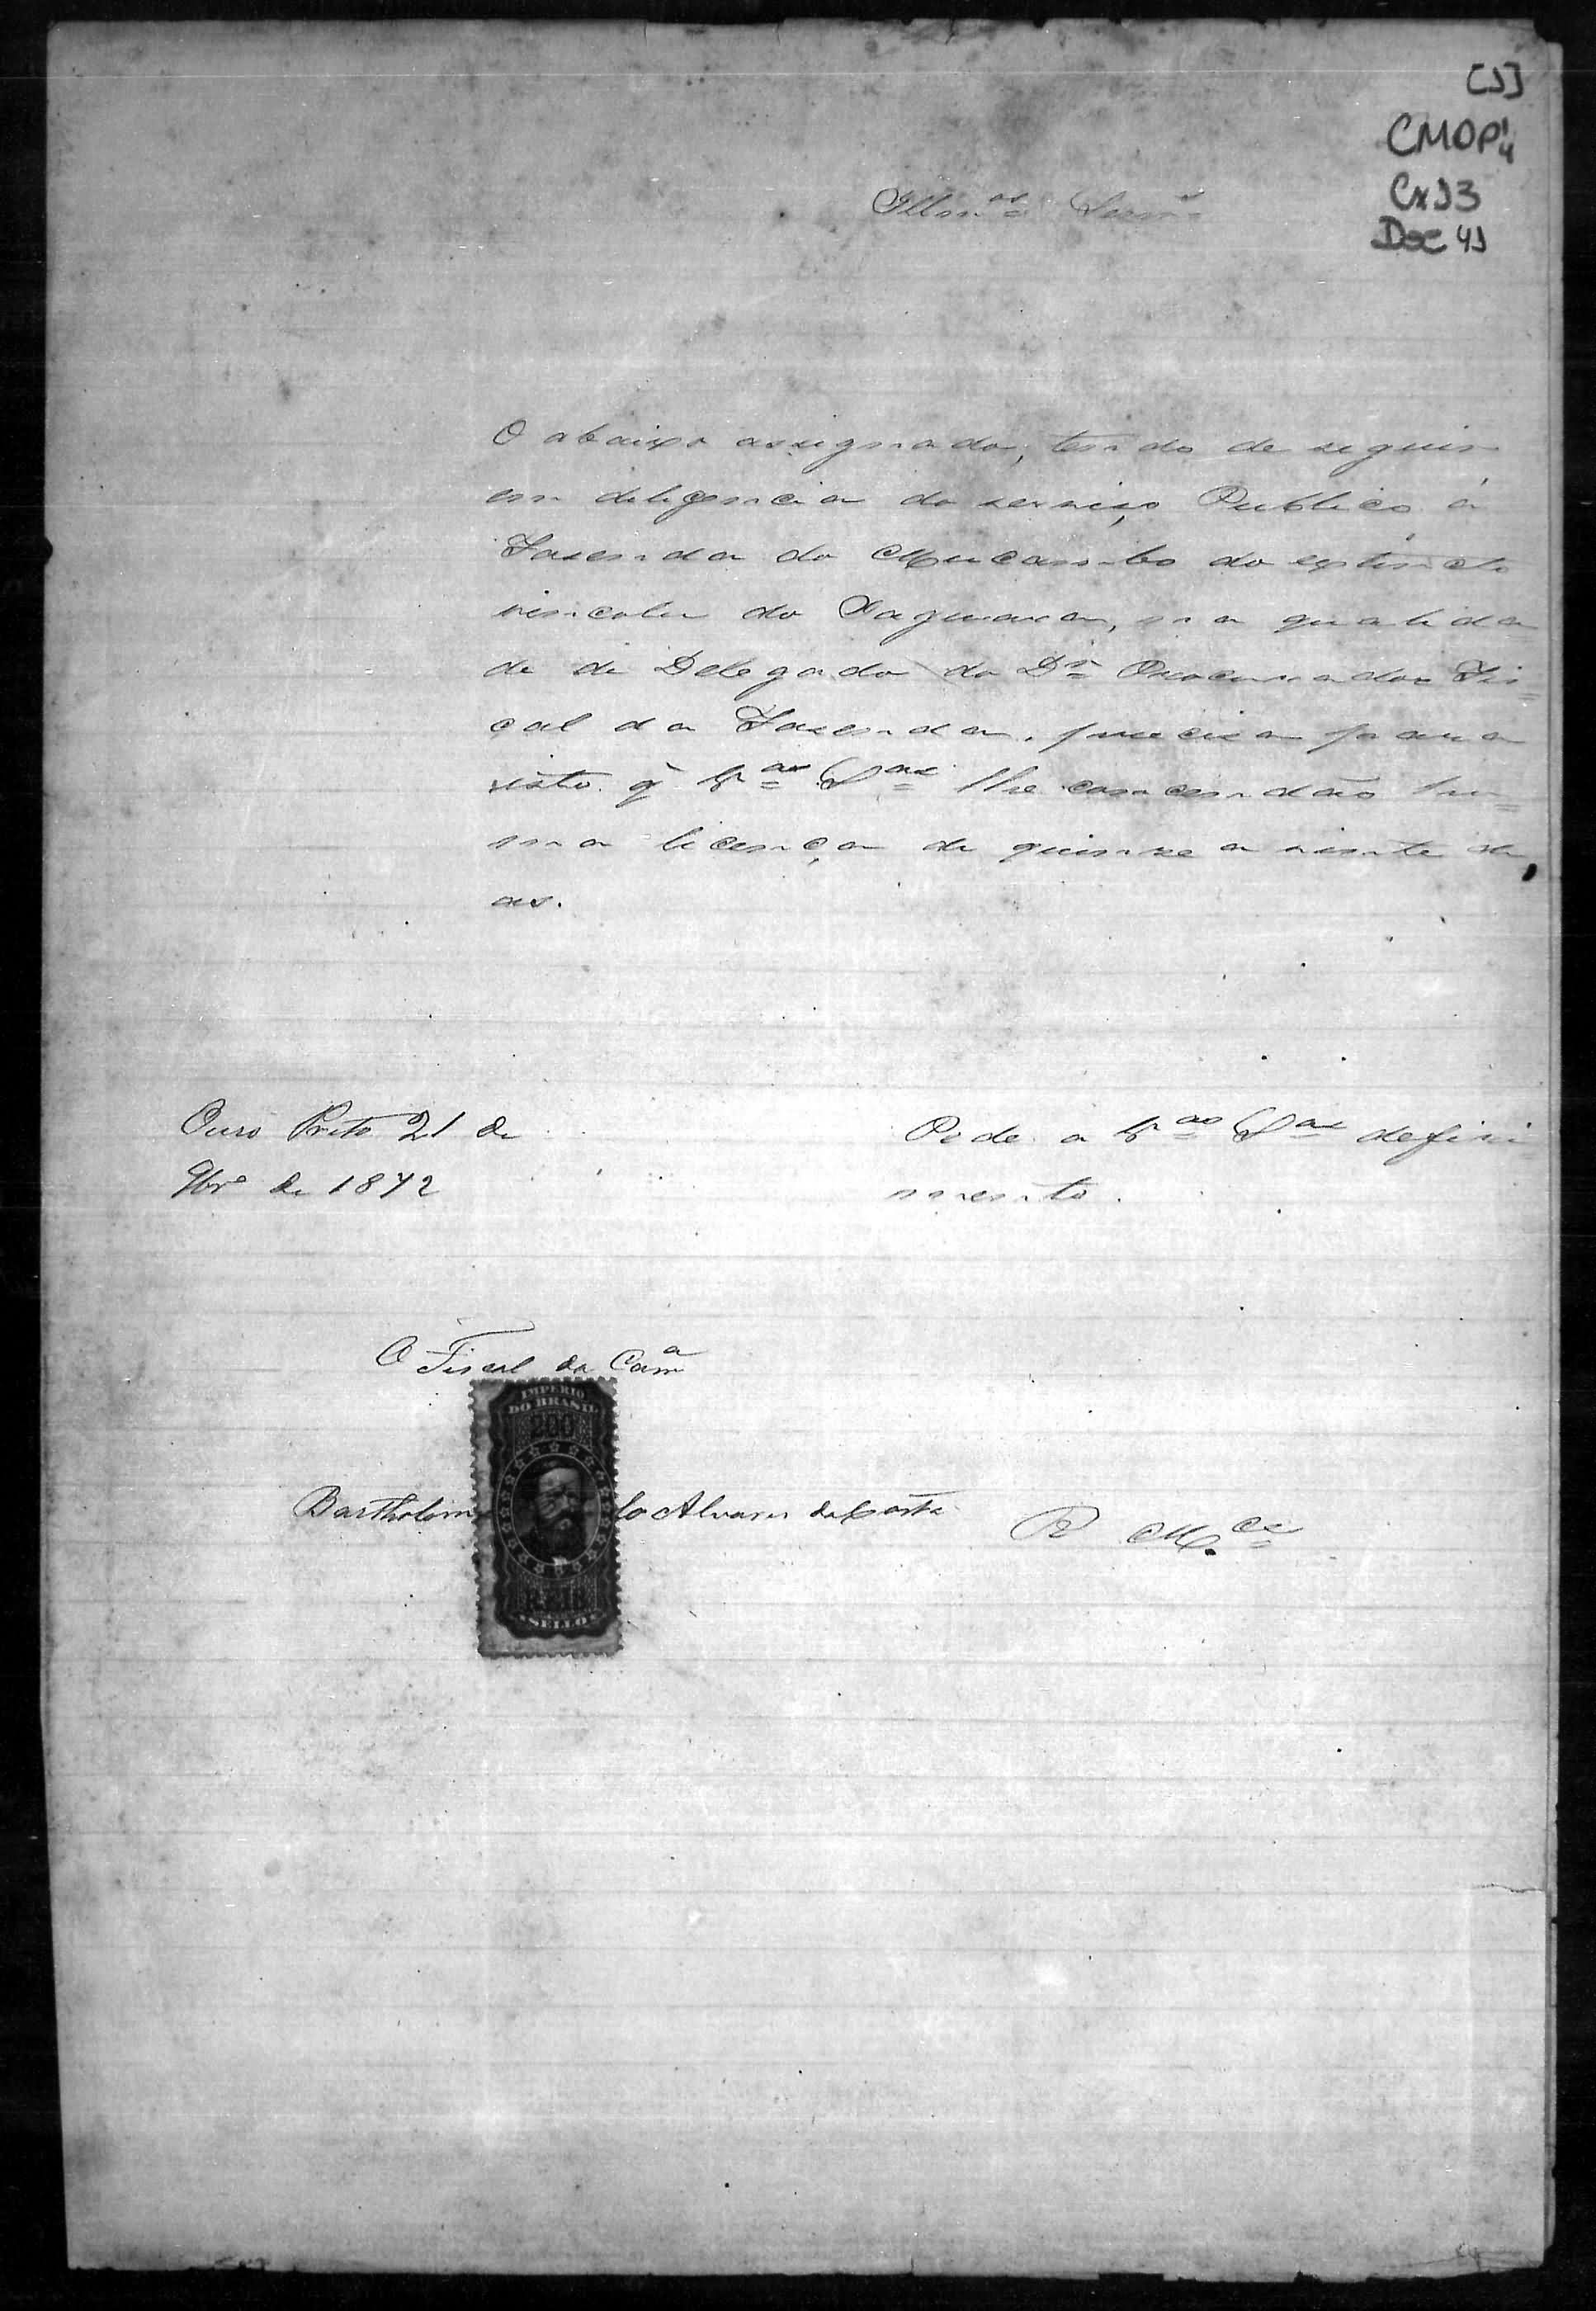 [1]
CMOP 1/4
Cx 13
Doc 41
Illm.os Senr.s
O abaixo assignado, tendo de seguir
em deligencia do serviço Publico á
Fasenda do Mucambo do extincto
vinculo do Jaguara, na qualida
de de Delegado do Dr. Procurador Fis=
çal da Fasenda, precisa para
isto q̃ V.as S.as lhe concendão hu=
ma licença de quinze a vinte di
as.
Ouro Preto 21 de
9br.o de 1872
Pede a V.as S.as defiri
mento.
O Fiscal da Cam.a
IMPERIO
DO BRASIL
200
Bartholom lo Alvares da Costa
REIS
SELLO
R M.ce